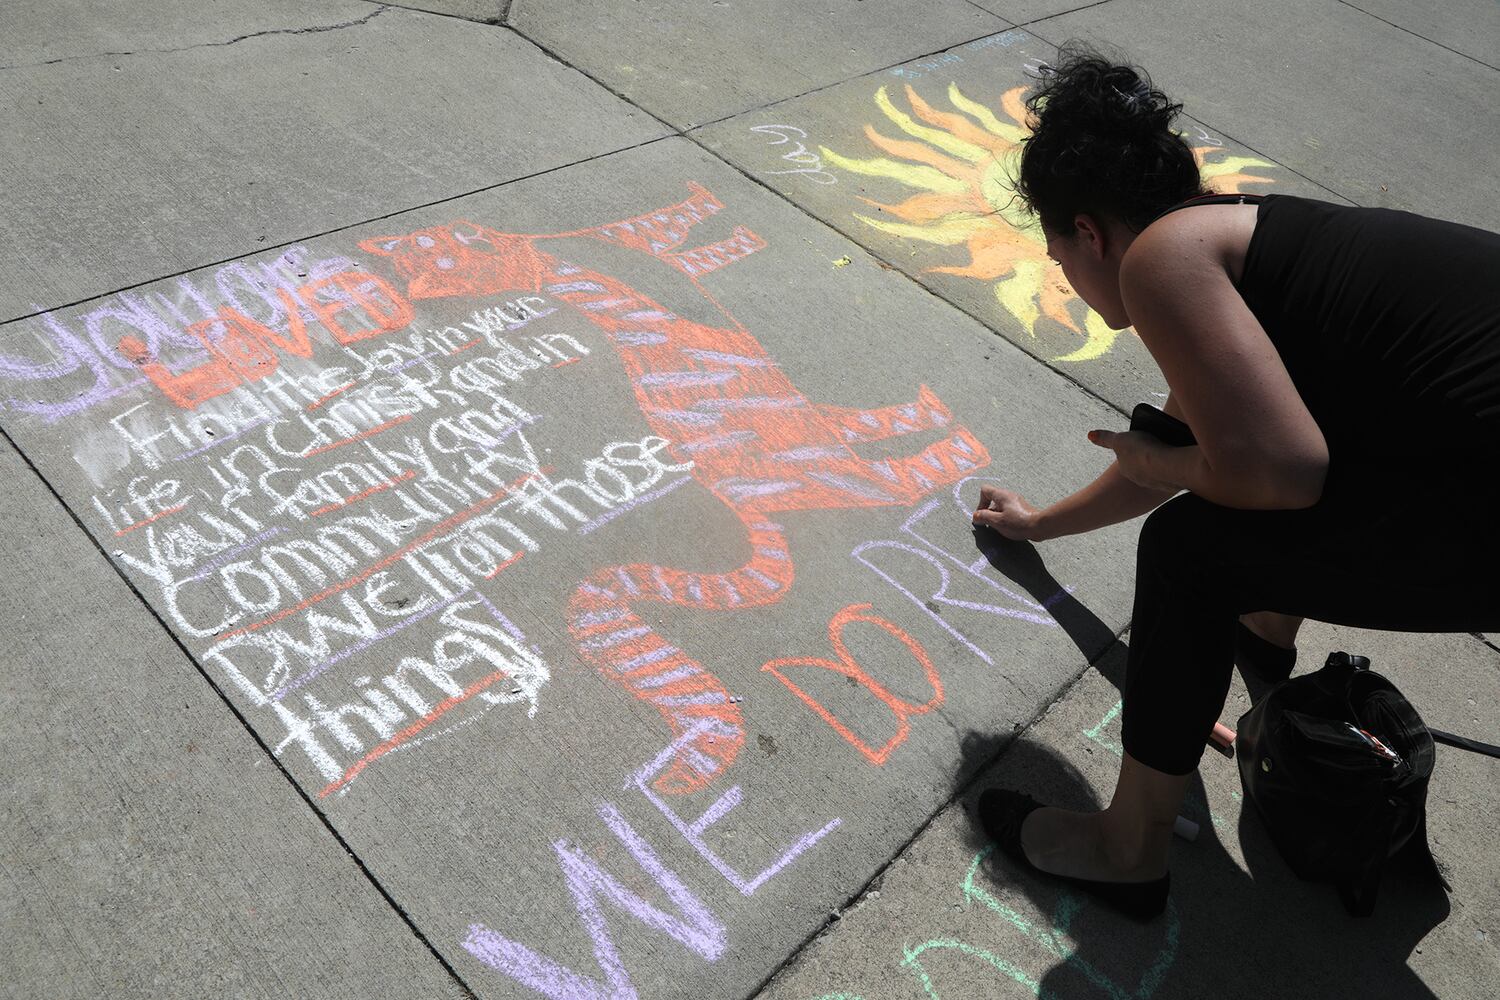 You are
LOVED
Find the Joy in your
life, in Christ, and in
your family and
Community.
Dwell on those
things
WE
DO
RE
day